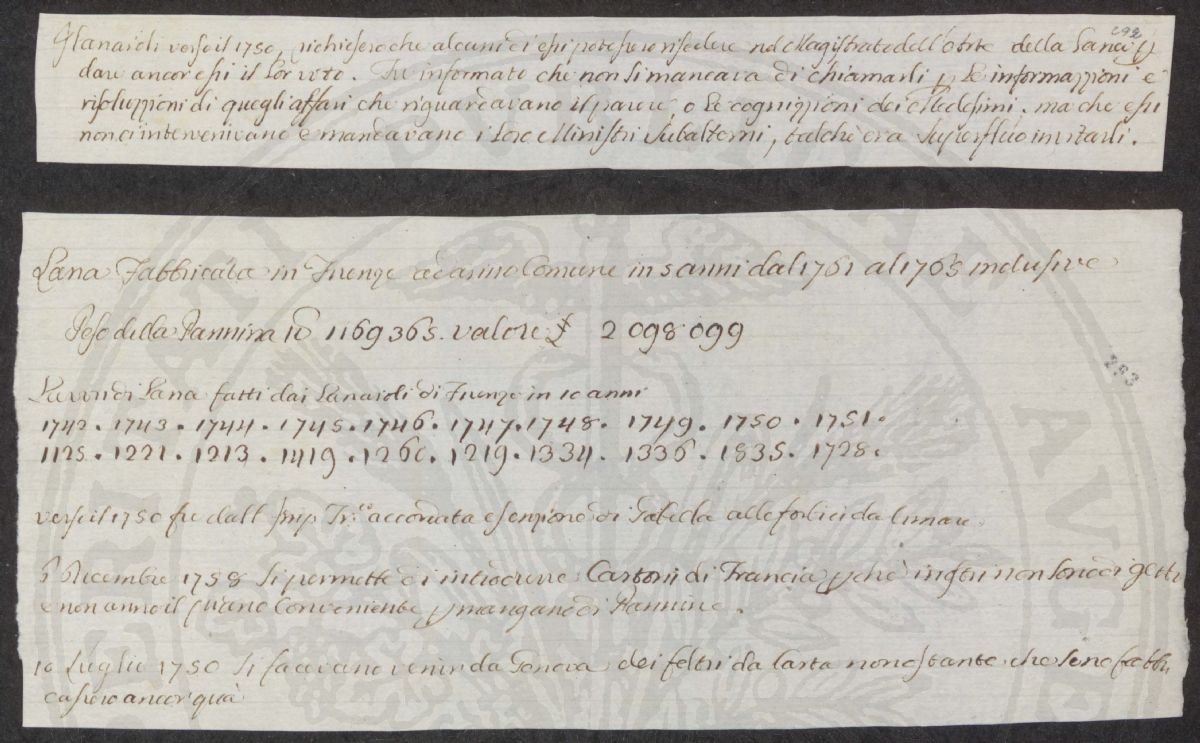 292
Glanaioli verso il 1750, richiesero che alcuni di essi potessero risedere nel Magistrato dell'Arte della Lana p
dare ancor essi il lor voto. Fu informato che non si mancava di chiamarli p le informazzioni e
risoluzzioni di quegli affari che riguardavano il parere, o le cognizzioni dei Medesimi. ma che essi
non ci intervenivano e mandavano i loro Ministri Subalterni, talchè era superfluo invitarli.
Lana Fabbricata in Firenze ad anno Comune in 5 anni dal 1761 al 1765 inclusive
Peso della Pannina lb 1169365. valore £ 2 098 099
293
Lavori di Lana fatti dai Lanaioli di Firenze in 10 anni
1742. 1743. 1744. 1745. 1746. 1747. 1748. 1749. 1750. 1751.
1125. 1221. 1213. 1419. 1260. 1219. 1334. 1336. 1835. 1728.
verso il 1750 fu dall accordata esenzione di Gabella alle forbici da cimare
Dicembre 1758 si permette di introdurre Cartoni di Francia pchè
e non anno il piano Conveniente p mangano di Pannine.
10 Luglio 1750 si facevano venir da Genova dei feltri da Carta nonostante che se ne fabbri
cassero ancor quà